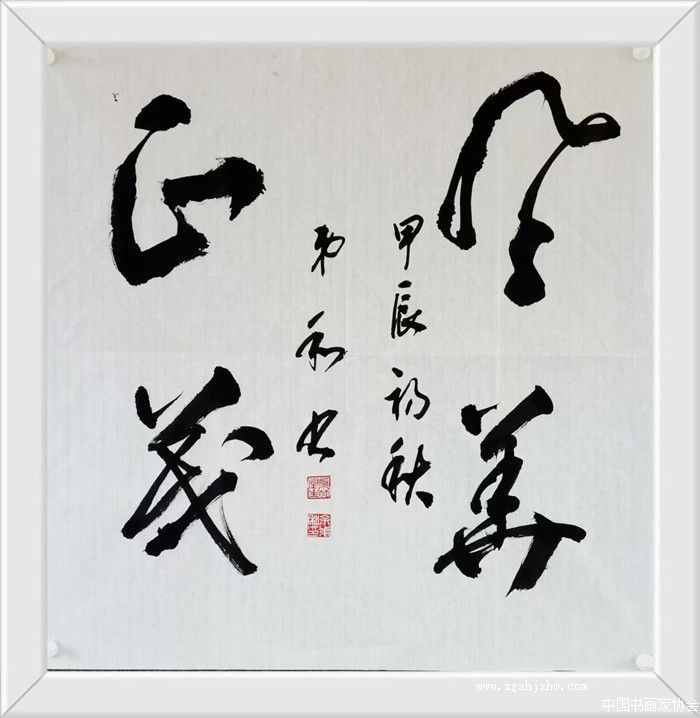 风華
甲辰初秋
和书
正茂
www.zgshjxhw.com
中国书画家协会